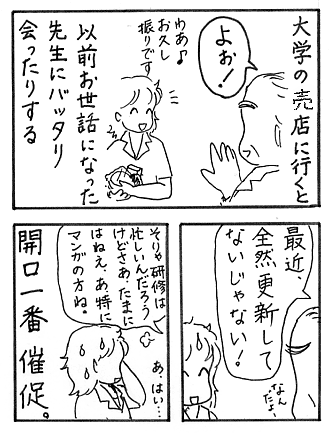 大学の売店に行くと
よぉ!
わあ♪
お久し
振りです
以前お世話になった
先生にバッタリ
会ったりする
最近、
全然更新して
ないじゃない!
なん
だよ、
そりゃ研修は
忙しいんだろう
けどさあ、たまに
はねえ、あ、特に
マンガの方ね。
あ、はい…
開口一番 催促。